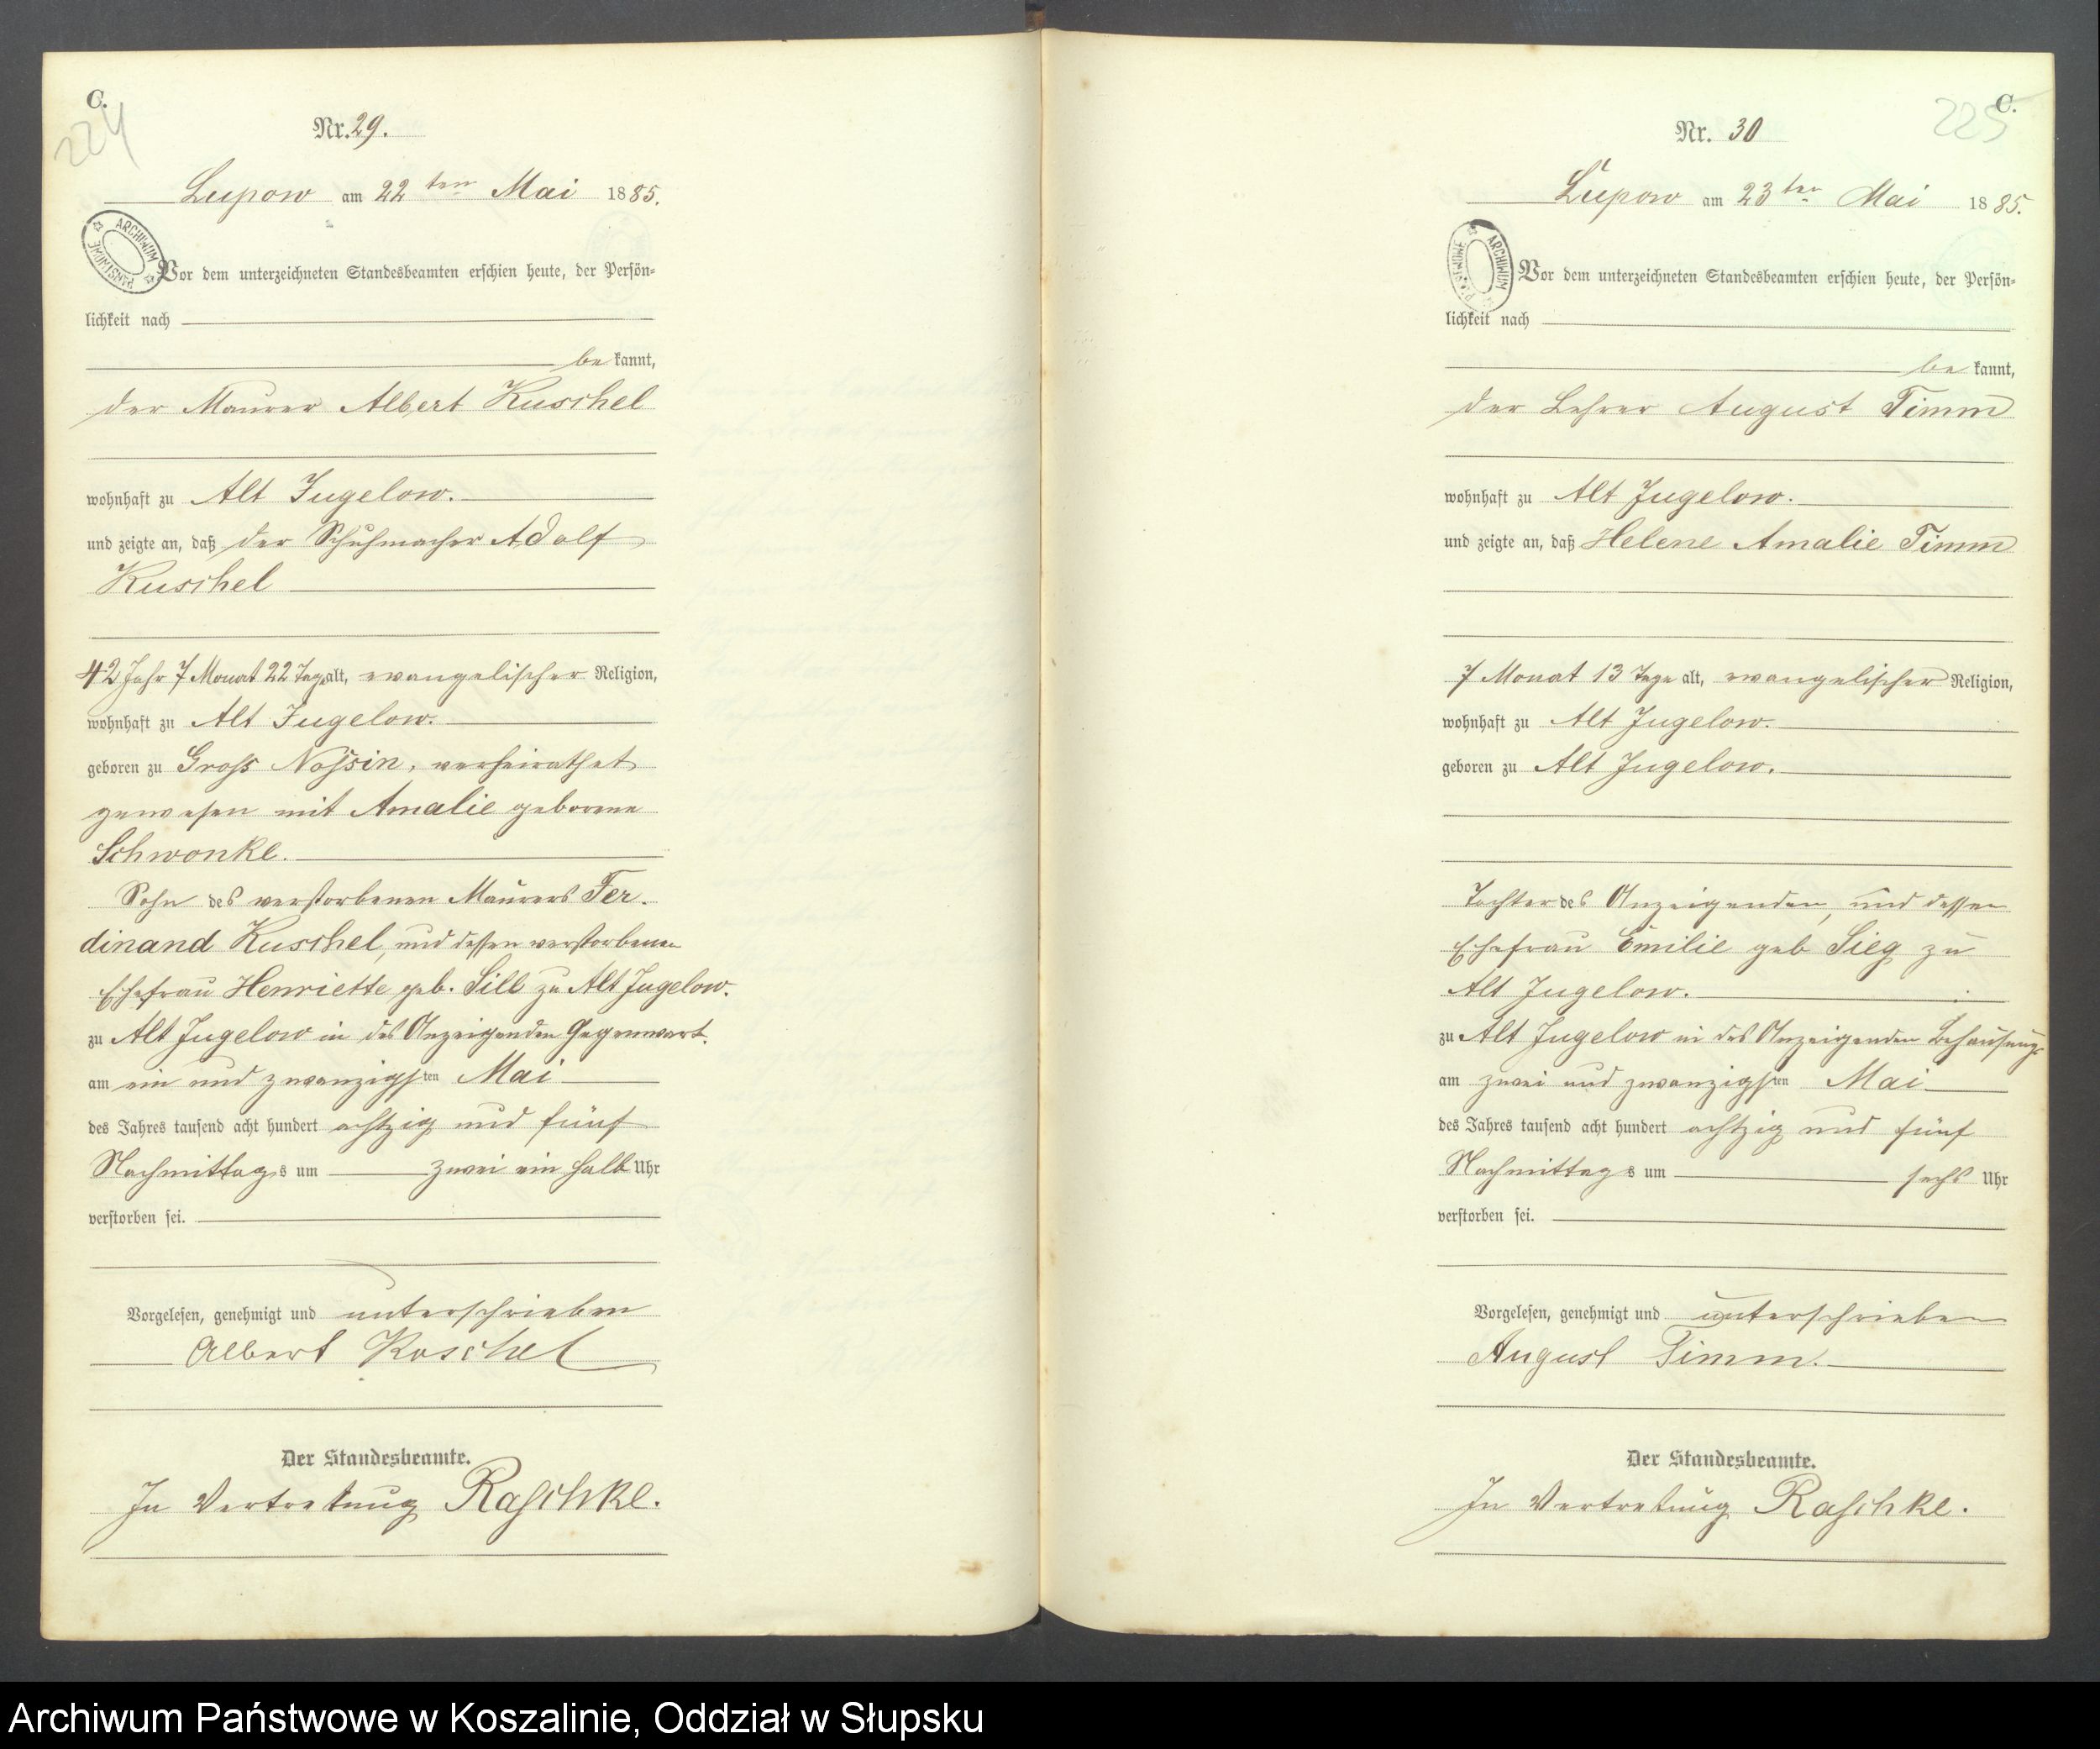 C.
224
Nr. 29.
Lupow am 22ten Mai 1885.
ARCHIWUM PAŃSTWOWE
Vor dem unterzeichneten Standesbeamten erschien heute, der Persön-
lichkeit nach
be kannt,
der Maurer Albert Kuschel
wohnhaft zu Alt Jugelow.
und zeigte an, daß der Schuhmacher Adolf
Kuschel
42 Jahr 7 Monat 22 Tage alt, evangelischer Religion,
wohnhaft zu Alt Jugelow.
geboren zu Gross Nossin, verheirathet
gewesen mit Amalie geborene
Schwonke.
Sohn des verstorbenen Maurers Fer-
dinand Kuschel, und dessen verstorbenen
Ehefrau Henriette geb. Sill zu Alt Jugelow.
zu Alt Jugelow in des Anzeigenden Gegenwart.
am ein und zwanzigsten Mai
des Jahres tausend acht hundert achtzig und fünf
Nachmittags um zwei ein halb Uhr
verstorben sei.
Vorgelesen, genehmigt und unterschrieben
Albert Koschel
Der Standesbeamte.
In Vertretung Raschke.
C.
225
Nr. 30
Lupow am 23ten Mai 1885.
ARCHIWUM PAŃSTWOWE
Vor dem unterzeichneten Standesbeamten erschien heute, der Persön-
lichkeit nach
be kannt,
der Lehrer August Timm
wohnhaft zu Alt Jugelow.
und zeigte an, daß Helene Amalie Timm
7 Monat 13 Tage alt, evangelischer Religion,
wohnhaft zu Alt Jugelow.
geboren zu Alt Jugelow.
Tochter des Anzeigenden, und dessen
Ehefrau Emilie geb Sieg zu
Alt Jugelow.
zu Alt Jugelow in des Anzeigenden Behausung
am zwei und zwanzigsten Mai
des Jahres tausend acht hundert achtzig und fünf
Nachmittags um sechs Uhr
verstorben sei.
Vorgelesen, genehmigt und unterschrieben
August Timm.
Der Standesbeamte.
In Vertretung Raschke.
Archiwum Państwowe w Koszalinie, Oddział w Słupsku